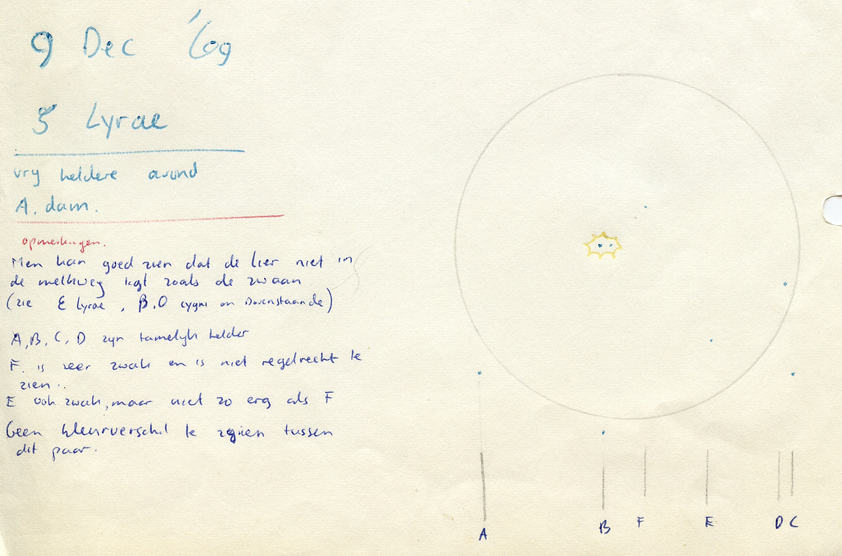 9 Dec '69
ζ Lyrae
vry heldere avond
A.dam.
opmerkingen.
Men kan goed zien dat de lier niet in
de melkweg ligt zoals de zwaan
(zie E lyrae, B,O cygni en Bovenstaande)
A,B,C,D zyn tamelyk helder
F. is zeer zwak en is niet regelrecht te
zien..
E ook zwak, maar niet zo erg als F
Geen kleurverschil te zien tussen
dit paar.
A B F E D C